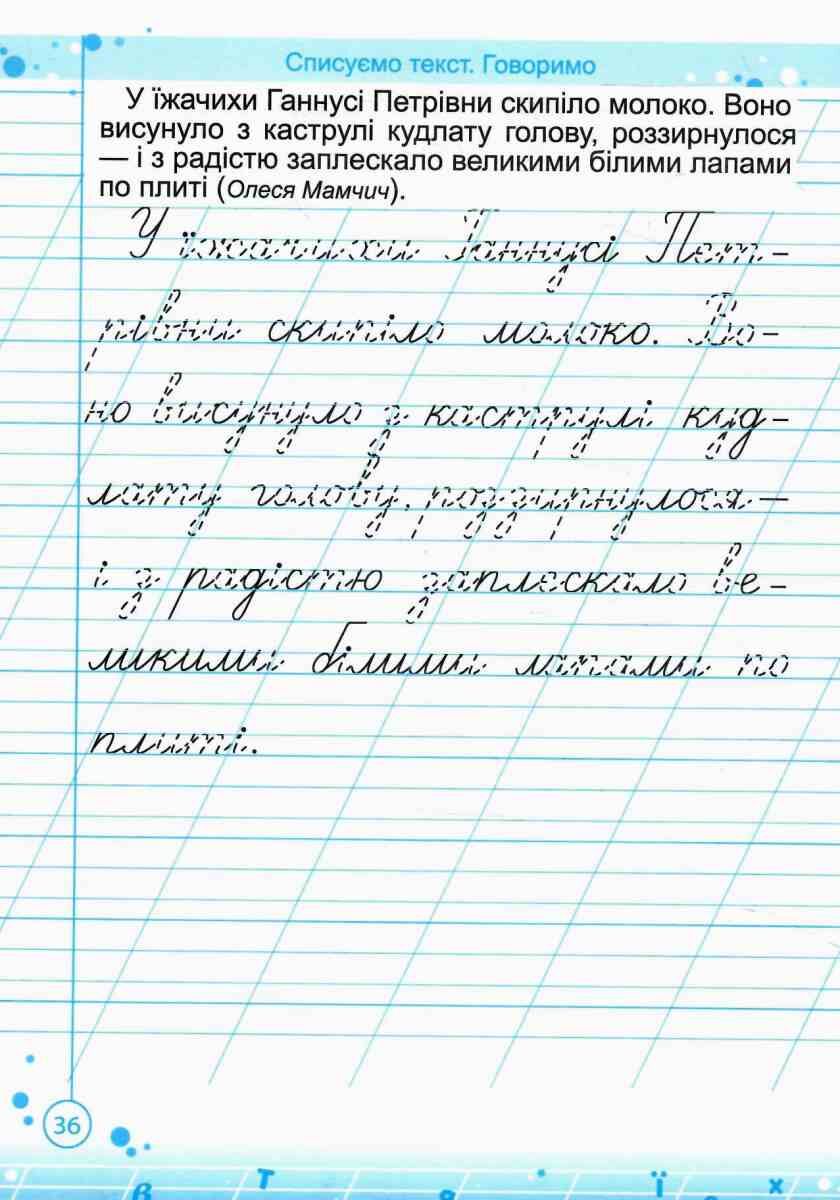 Списуємо текст. Говоримо
У їжачихи Ганнусі Петрівни скипіло молоко. Воно
висунуло з каструлі кудлату голову, роззирнулося
— і з радістю заплескало великими білими лапами
по плиті (Олеся Мамчич).
У їжачихи Ганнусі Пет-
рівни скипіло молоко. Во-
но висунуло з каструлі куд-
лату голову, роззирнулося —
і з радістю заплескало ве-
ликими білими лапами по
плиті.
36
в т е ї х